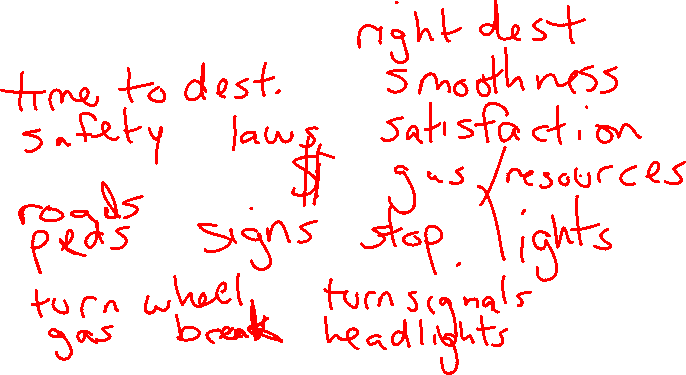 right dest
time to dest. smoothness
safety laws satisfaction
$ gas resources
roads
peds signs stop. lights
turn wheel, turn signals
gas break headlights